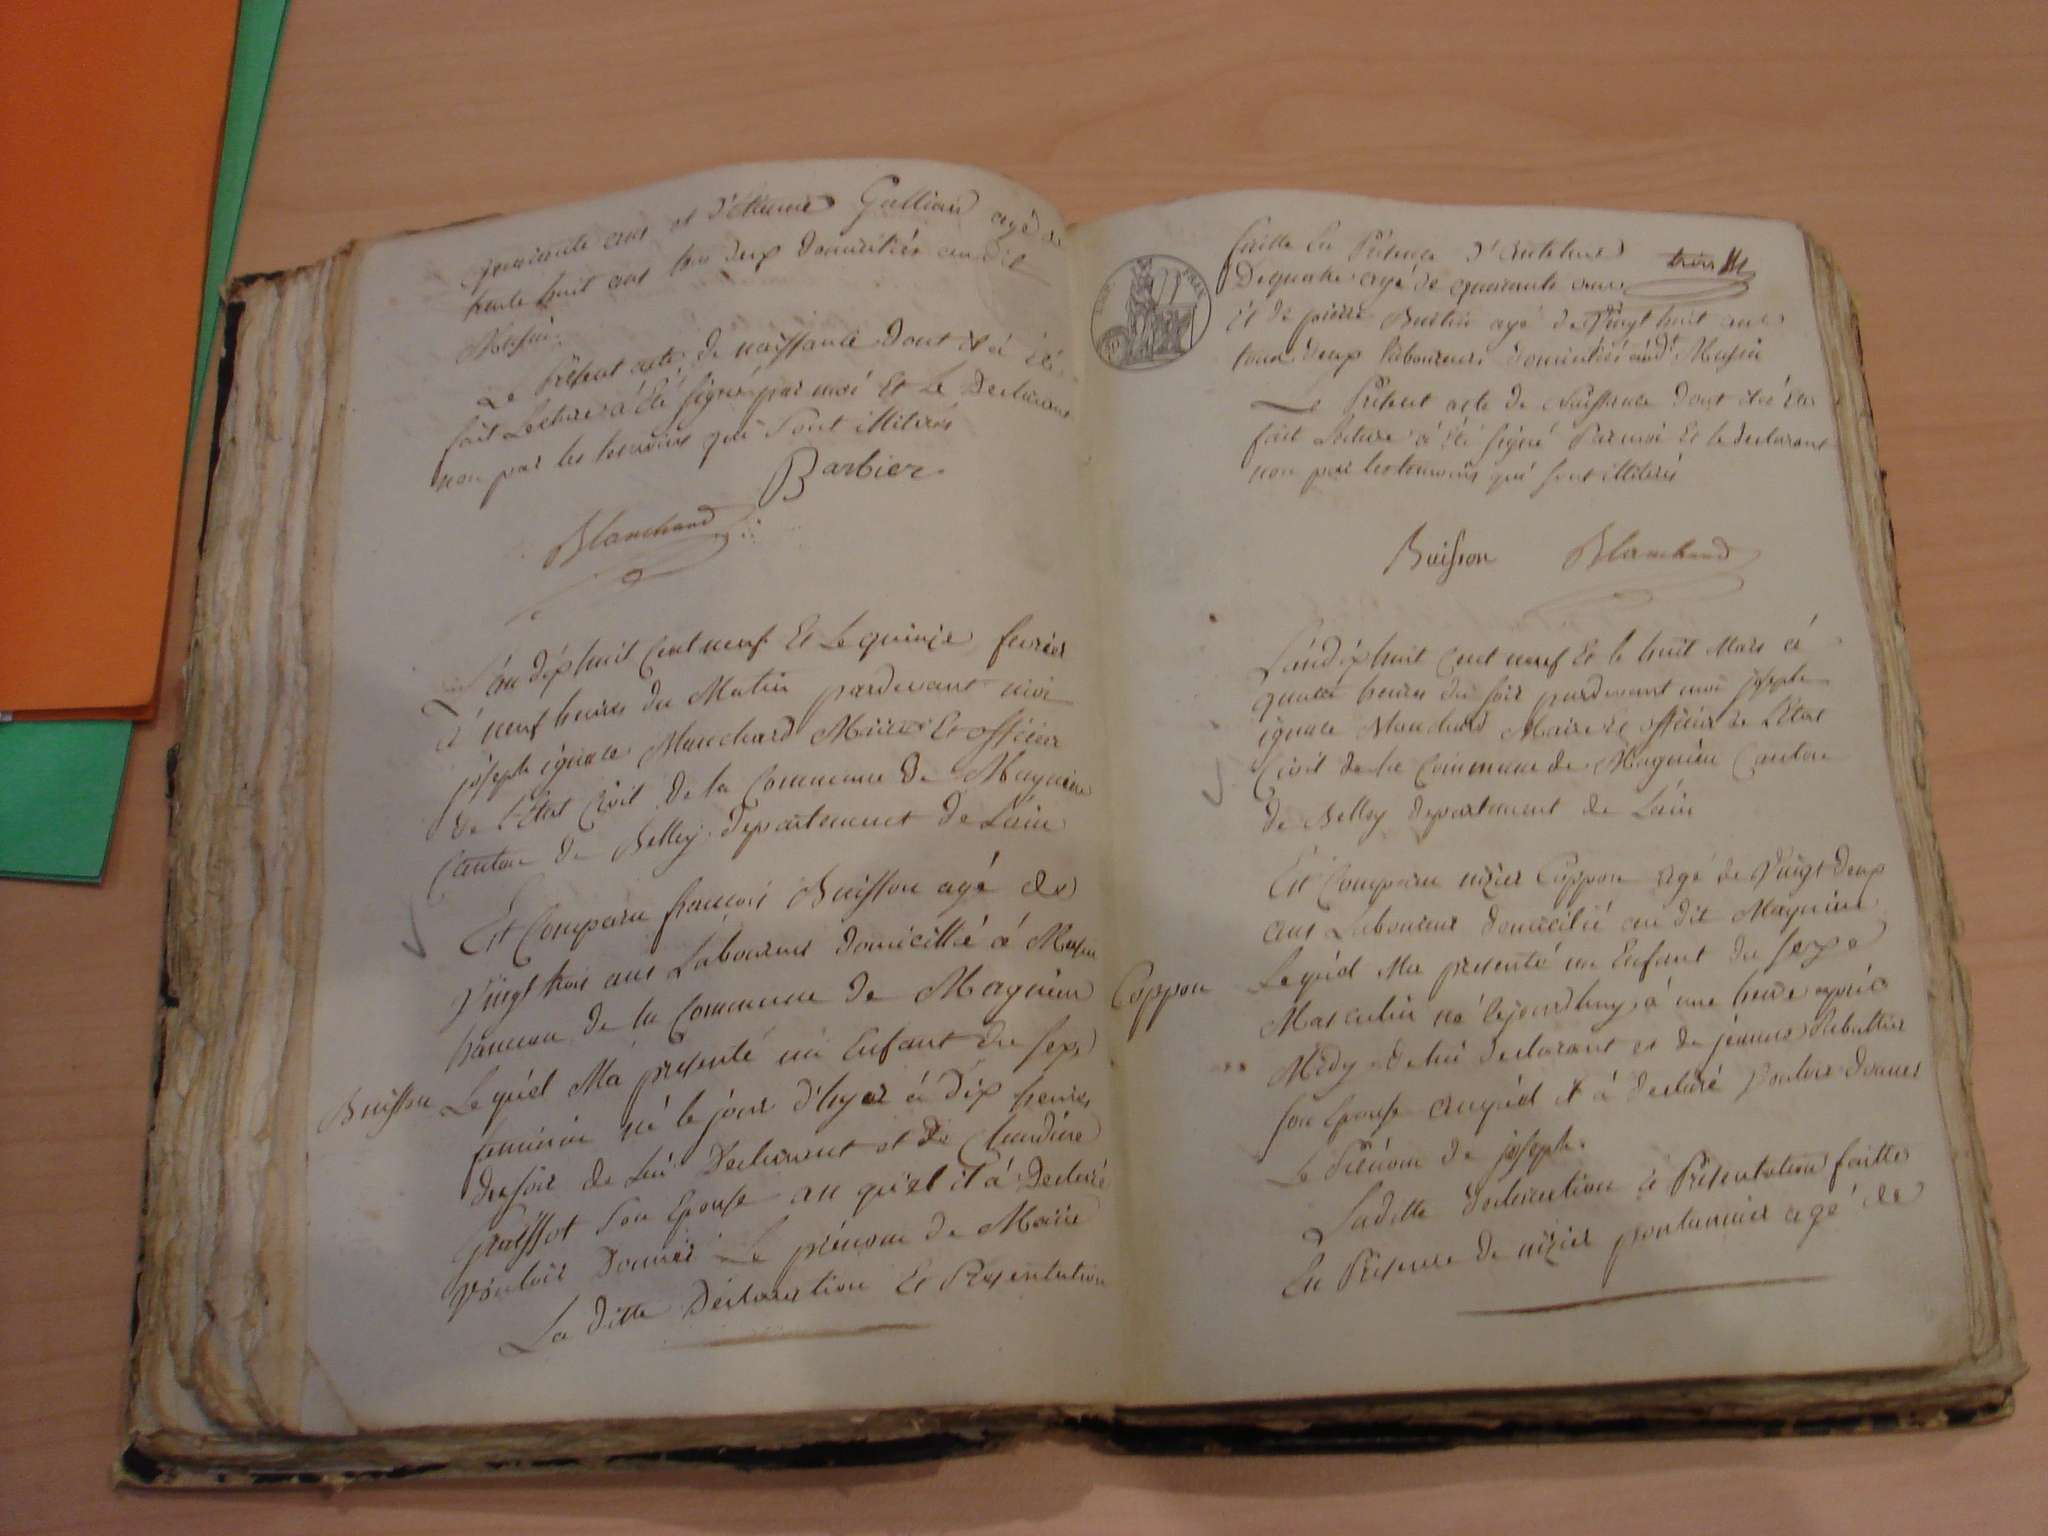 quarante ans et d'Etienne Gullian agé de
trente huit ans tous deux domiciliés audit
Le Présent acte de naissance dont il a été
fait Lecture a été signé par moi Et Le Declarant
non par les temoins qui Sont illitérés
Barbier
Blanchard
L'an dix huit Cent neuf Et Le quinze fevrier
à neuf heures du Matin pardevant moi
joseph ignace Blanchard Maire Et officier
de L'Etat Civil de la Commune de Magnieu
Canton de Belley departement de Lain
Est Comparu francois Buisson agé de
Vingt trois ans Laboureur domicillié á
hameau de la Commune de Magnieu
Buisson
Lequel Ma presenté un Enfant du sexe
feminin né le jour d'hyer à dix heures
du soir de Lui Declarant et de Claudine
son Epouse au quel il á Declaré
vouloir Donner Le prénom de Marie
La ditte Déclaration Et Presentation
faitte En Présence d'Anthelme
Dequatre agé de quarante trois
Et de pierre agé de Vingt huit ans
tous deux laboureurs domiciliés aud.t
Le Présent acte de Naissance dont il a été
fait Lecture a été signé Par moi Et le declarant
non par les temoins qui sont illitérés
Buisson Blanchard
L'an dix huit Cent neuf Et le huit Mars á
quatre heures du soir pardevant moi joseph
ignace Blanchard Maire et officier de L'Etat
Civil de la Commune de Magnieu Canton
de Belley departement de Lain
Est Comparu nizier Coppon agé de Vingt deux
ans Laboureur domicilié au dit Magnieu
Coppon
Lequel Ma presenté un Enfant du sexe
Masculin né cejourdhuy á une heure après
Midy de lui declarant et de jeanne
son Epouse auquel il á declaré vouloir donner
Le Prénom de joseph.
Laditte declaration et Présentation faittes
En Présence de nizier agé de